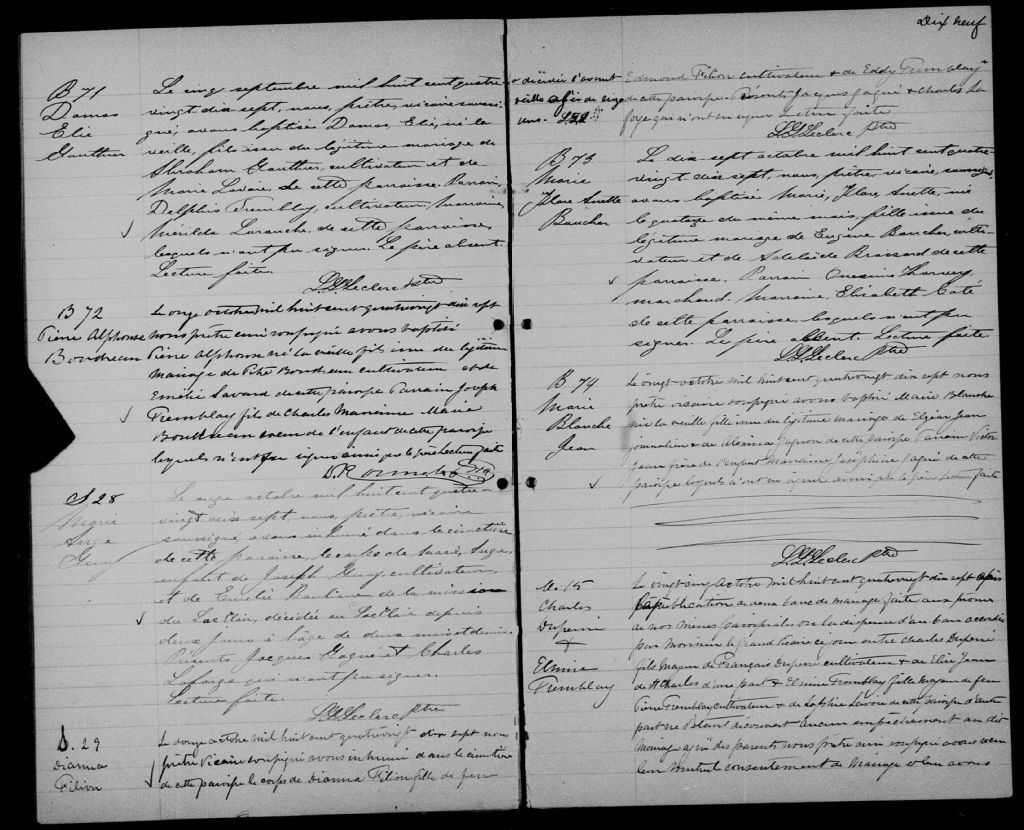 B 71
Damas
Elie
Gauthier
Le cinq septembre mil huit cent quatre
vingt dix sept, nous, prêtre, vicaire soussi-
gné, avons baptisé Damas, Elie, né la
veille, fils issu du légitime mariage de
Abraham Gauthier, cultivateur et de
Marie Lavoie de cette paroisse. Parrain,
Delphis Tremblay, cultivateur, Marraine,
Mérilda Larouche, de cette paroisse,
lesquels n'ont pu signer. Le père absent.
Lecture faite.
Leclerc Ptre
B 72
Pierre Alphonse
Boudreau
Le onze octobre mil huit cent quatrevingt dix sept
nous prêtre curé soussigné avons baptisé
Pierre Alphonse né la veille fils issu du légitime
mariage de Boudreau cultivateur et de
Emélie Savard de cette paroisse Parrain Joseph
Tremblay fils de Charles Marraine Marie
Boudreau soeur de l'enfant de cette paroisse
lesquels n'ont su signer ainsi que le père Lecture faite
S 28
Marie
Ange
Guay
Le onze octobre mil huit cent quatre-
vingt dix sept, nous, prêtre, vicaire
soussigné avons inhumé dans le cimetière
de cette paroisse, le corps de Marie, Ange,
enfant de Joseph Guay, cultivateur,
et de Emélie de la mission
du Lac, décédée au Lac depuis
deux jours à l'âge de deux mois et demi.
Présents Jacques Gagné et Charles
Laforge qui n'ont pu signer.
Lecture faite.
Leclerc Ptre
S. 29
Dianna
Filion
Le douze octobre mil huit cent quatrevingt dix sept nous
prêtre vicaire soussigné avons inhumé dans le cimetière
de cette paroisse le corps de Dianna Filion fille de feu
Dix neuf
+ décédée l'avant
veille
ans.
Edmond Filion cultivateur & de Eddy Tremblay +
de cette paroisse. Présents Jacques Gagné & Charles La
forge qui n'ont su signer Lecture faite
Leclerc Ptre
B 73
Marie
Flore Anette
Boucher
Le dix sept octobre mil huit cent quatre-
vingt dix sept, nous, prêtre vicaire, soussigné,
avons baptisé Marie, Flore Anette, née
le quatorze du même mois, fille issue du
légitime mariage de Eugène Boucher, culti-
vateur et de Adelaïde Brassard de cette
paroisse. Parrain Onésime Tharvey
marchand. Marraine, Elisabeth Coté
de cette paroisse, lesquels n'ont pu
signer. Le père absent. Lecture faite.
Leclerc Ptre
B 74
Marie
Blanche
Jean
Le vingt octobre mil huit cent quatrevingt dix sept nous
prêtre vicaire soussigné avons baptisé Marie Blanche
née la veille fille issue du légitime mariage de Elzéar Jean
journalier & de Alexina Gagnon de cette paroisse Parrain Victor
Jean frère de l'enfant Marraine Joséphine Gagné de cette
paroisse lesquels n'ont su signer ainsi que le père Lecture faite
Leclerc Ptre
M. 15
Charles
Duperré
+
Elmire
Tremblay
Le vingt cinq Octobre mil huit cent quatrevingt dix sept après
la publication de deux bans de mariage faite aux prones
de nos messes paroissiales vu la dispense d'un ban accordée
par Monsieur le Grand Vicaire ce jour entre Charles Duperré
fils majeur de François Duperré cultivateur & de Elise Jean
de St Charles d'une part & Elmire Tremblay fille majeure de feu
Pierre Tremblay cultivateur & de Sophie Lavoie de cette paroisse d'autre
part ne s'étant découvert aucun empêchement au dit
mariage agréé des parents nous prêtre curé soussigné avons reçu
leur mutuel consentement de Mariage et leur avons